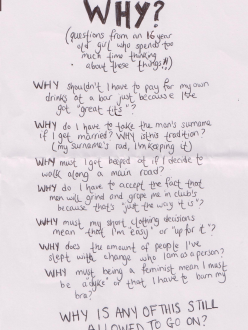 WHY?
(questions from an 16 year
old girl who spends too
much time thinking
about these things!!)
WHY shouldn't I have to pay for my own
drinks at a bar just because I've
got "great tits"?
WHY do I have to take the man's surname
if I get married? WHY is this tradition?
(my surname's rad, I'm keeping it)
WHY must I get beeped at if I decide to
walk along a main road?
WHY do I have to accept the fact that
men will grind and grope me in clubs
because "that's just the way it is"?
WHY must my short clothing decisions
mean that I'm "easy" or "up for it"?
WHY does the amount of people I've
slept with change who I am as a person?
WHY must being a feminist mean I must
be a "dyke" or that I have to burn my
bra?
WHY IS ANY OF THIS STILL
ALLOWED TO GO ON?